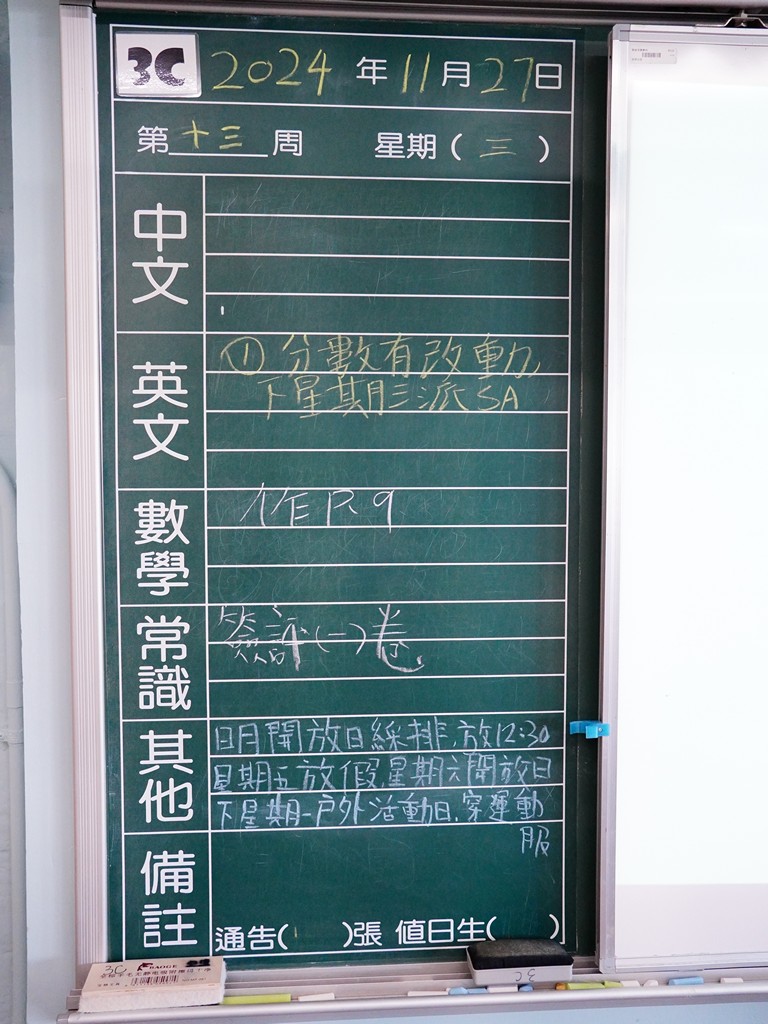 3C 2024年11月27日
第十三周 星期(三)
中文
英文
① 分數有改動,
下星期三派SA
數學
作P.9
常識
簽評(一)卷
其他
明開放日綵排,放12:30
星期五放假,星期六開放日
下星期一戶外活動日,穿運動
服
備註
通告( )張 值日生( )
3C
3C